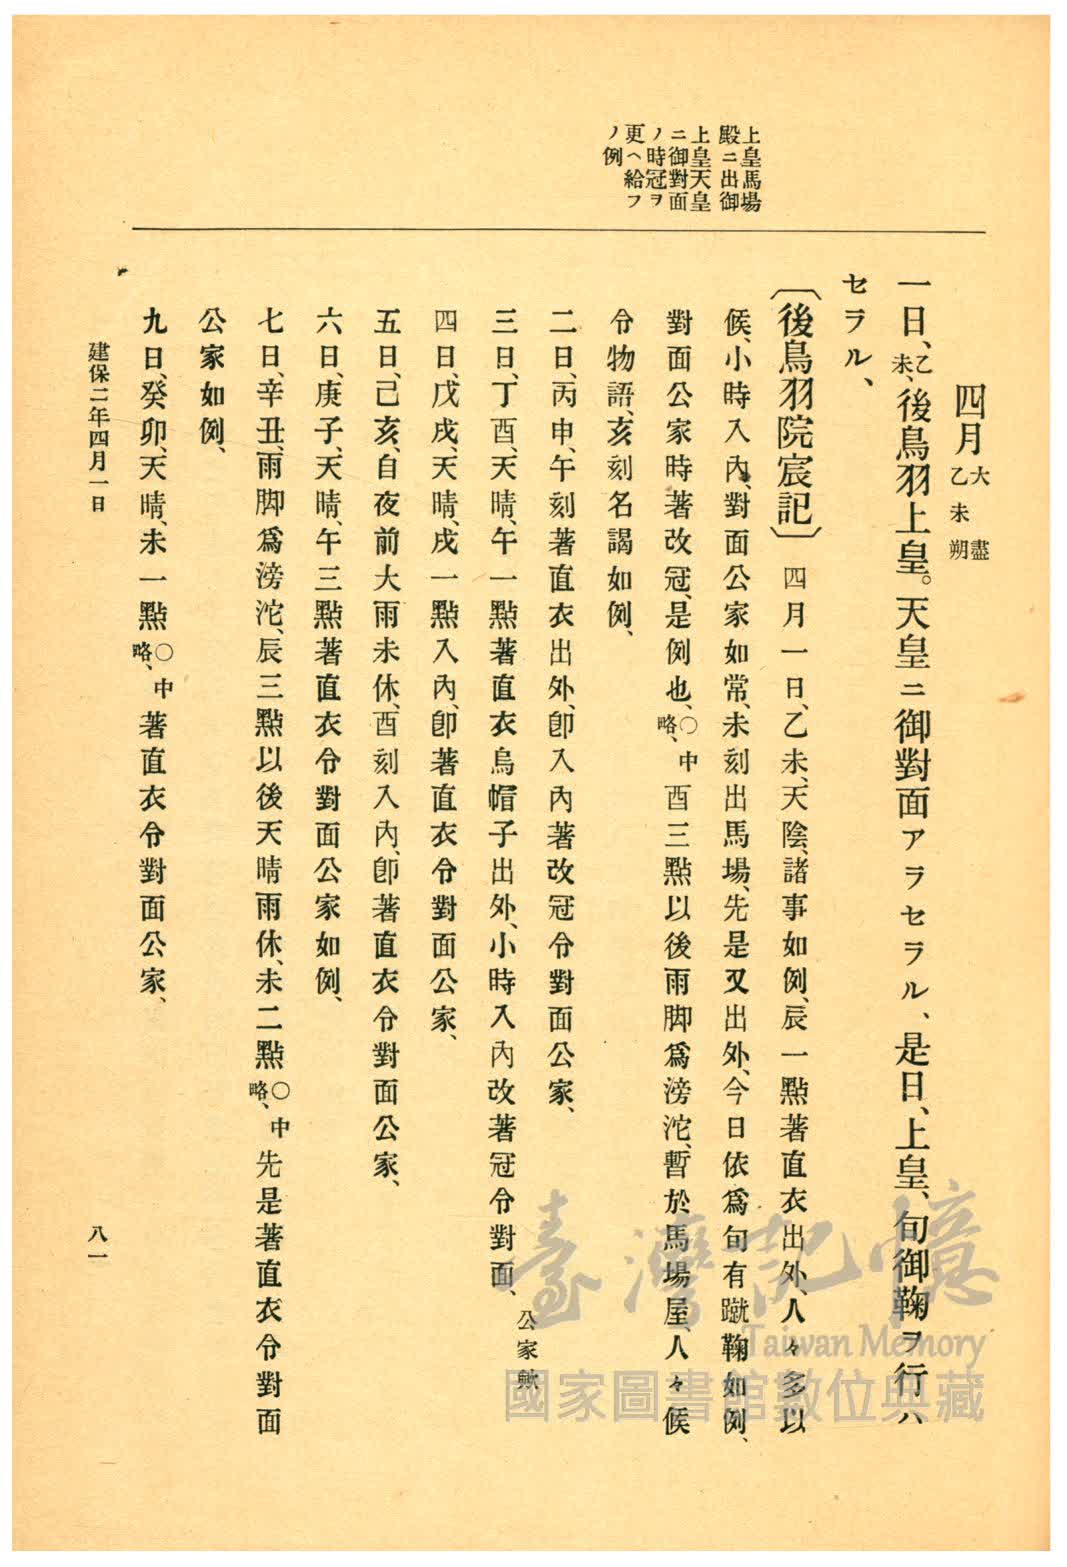 上皇馬場
殿ニ出御
上皇天皇
ニ御對面
ノ時冠ヲ
更ヘ給フ
ノ例
四月大盡乙未朔
一日、乙未、後鳥羽上皇。天皇ニ御對面アラセラル、是日、上皇、旬御鞠ヲ行ハ
セラル、
〔後鳥羽院宸記〕四月一日、乙未、天陰、諸事如例、辰一點著直衣出外、人々多以
候、小時入內、對面公家如常、未刻出馬場、先是又出外、今日依爲旬有蹴鞠如例、
對面公家時著改冠、是例也、○中略、酉三點以後雨脚爲滂沱、暫於馬場屋、人々候
令物語、亥刻名謁如例、
二日、丙申、午刻著直衣出外、卽入內著改冠令對面公家、
三日、丁酉、天晴、午一點著直衣烏帽子出外、小時入內改著冠令對面、公家歟
四日、戊戌、天晴、戌一點入內、卽著直衣令對面公家、
五日、己亥、自夜前大雨未休、酉刻入內、卽著直衣令對面公家、
六日、庚子、天晴、午三點著直衣令對面公家如例、
七日、辛丑、雨脚爲滂沱、辰三點以後天晴雨休、未二點○中略、先是著直衣令對面
公家如例、
九日、癸卯、天晴、未一點○中略、著直衣令對面公家、
建保二年四月一日
八一
臺灣記憶
Taiwan Memory
國家圖書館數位典藏